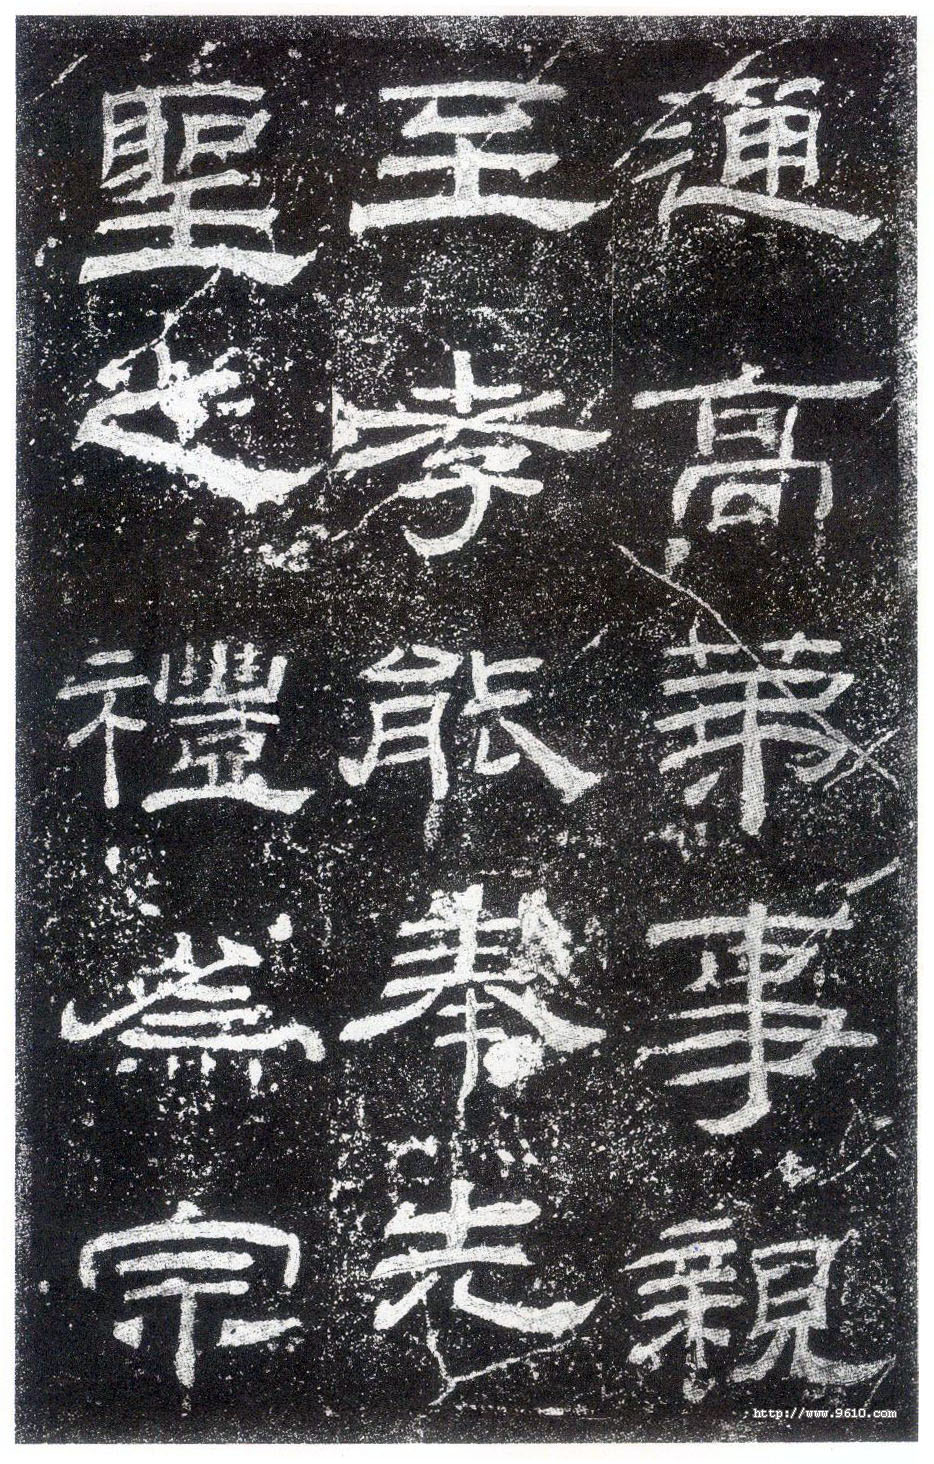 通高第事親
至孝能奉先
聖之禮為宗
http://www.9610.com